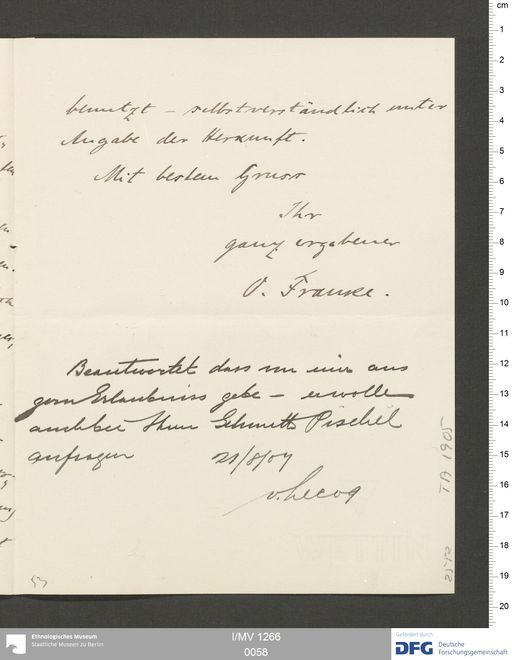 benutzt – selbstverständlich unter
Angabe der Herkunft.
Mit bestem Gruss
Ihr
ganz ergebener
O. Franke.
Beantwortet dass von mir aus
gern Erlaubniss gebe – er wolle
auch bei Herrn Pischel
anfragen 21/8/07
v. Lecoq
TA 1905
53
cm
1
2
3
4
5
6
7
8
9
10
11
12
13
14
15
16
17
18
19
20
Ethnologisches Museum
Staatliche Museen zu Berlin
I/MV 1266
0058
Gefördert durch
DFG Deutsche
Forschungsgemeinschaft